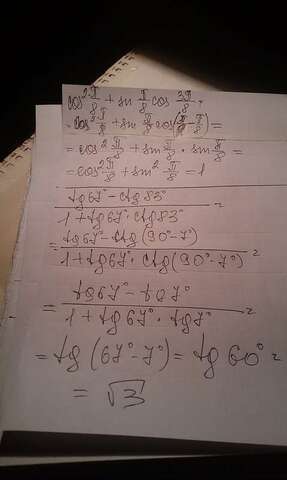 cos² π/8 + sin π/8 cos 3π/8 =
= cos² π/8 + sin π/8 cos(π/2 - π/8) =
= cos² π/8 + sin π/8 · sin π/8 =
= cos² π/8 + sin² π/8 = 1
tg67° - ctg83°
1 + tg67° · ctg83° =
= tg67° - ctg(90° - 7°)
1 + tg67° · ctg(90° - 7°) =
= tg67° - tg7°
1 + tg67° · tg7° =
= tg(67° - 7°) = tg60° =
= √3